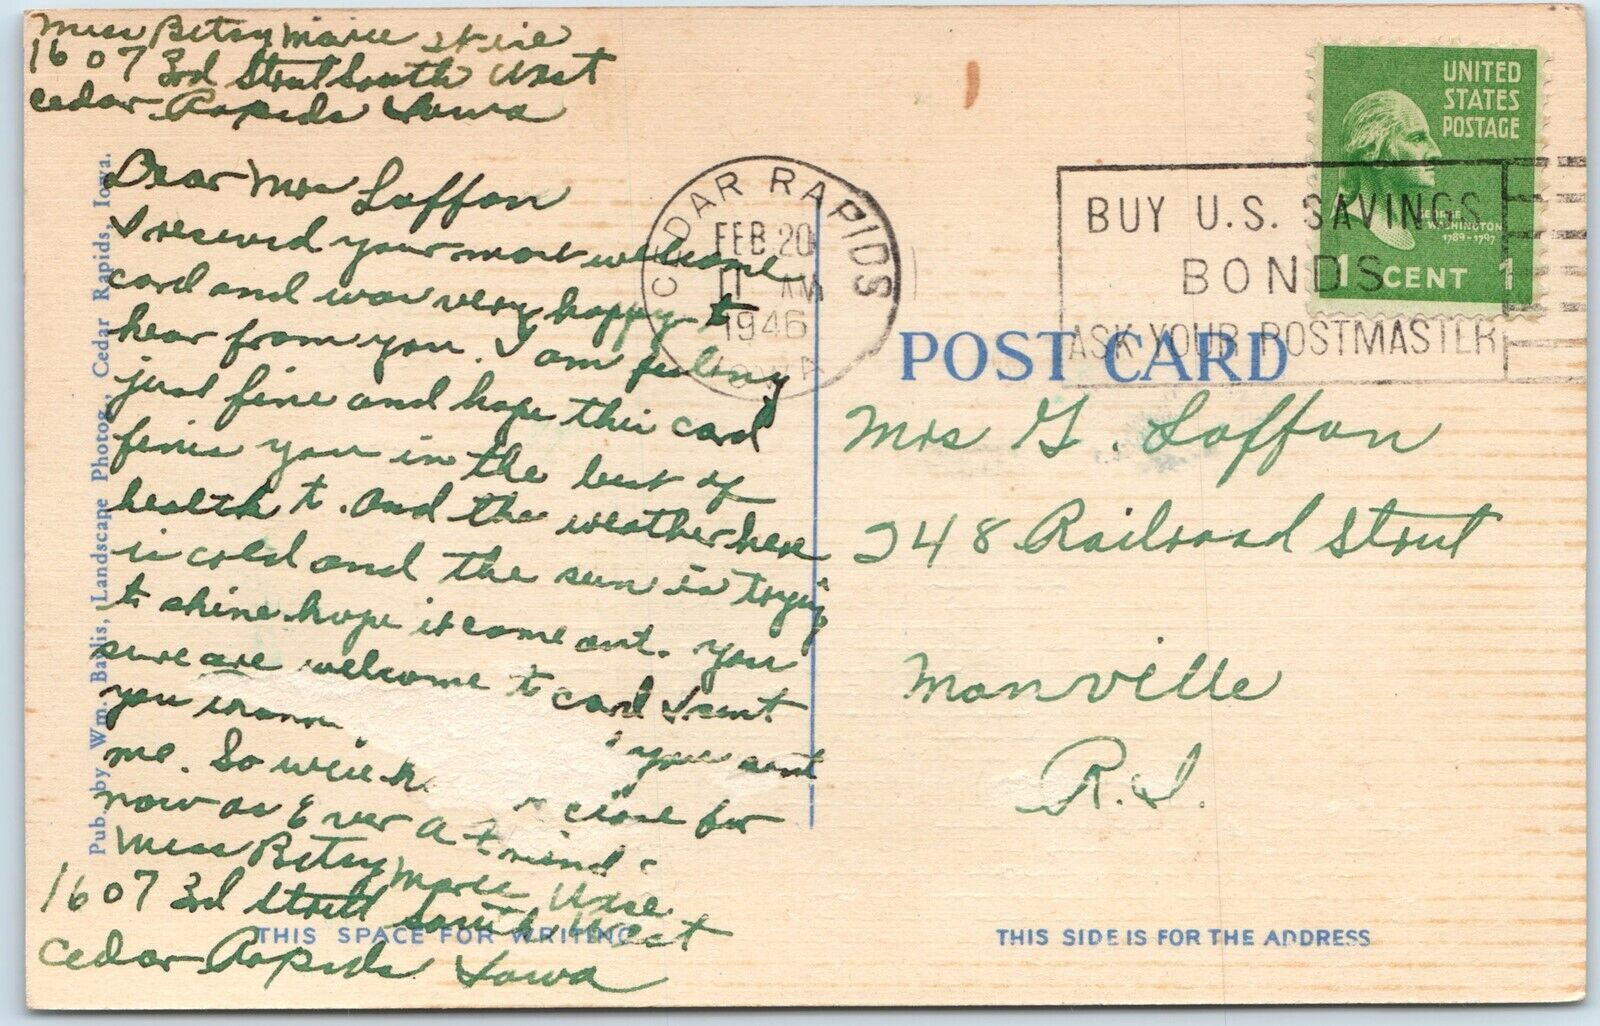 Miss Betsy Marie
1607 3rd Street South West
Cedar Rapids Iowa
Dear Mrs Laffon
I reserved your most welcome
card and was very happy to
hear from you. I am feeling
just fine and hope this card
finis you in the best of
health to. And the weather here
is cold and the sun is trying
to shine hope it come out. You
sure are welcome to card I sent
you
you sent
me. So
close for
now as Ever A Friend
Miss Betsy Marie
1607 3rd Street South West
Cedar Rapids Iowa
THIS SPACE FOR WRITING
Pub. by Wm. Baylis, Landscape Photog., Cedar Rapids, Iowa.
CEDAR RAPIDS
FEB 20
11 AM
1946
IOWA
BUY U.S. SAVINGS
BONDS
ASK YOUR POSTMASTER
UNITED
STATES
POSTAGE
GEORGE
WASHINGTON
1789-1797
1 CENT 1
POST CARD
Mrs G. Laffon
248 Railroad Street
Manville
R.I.
THIS SIDE IS FOR THE ADDRESS